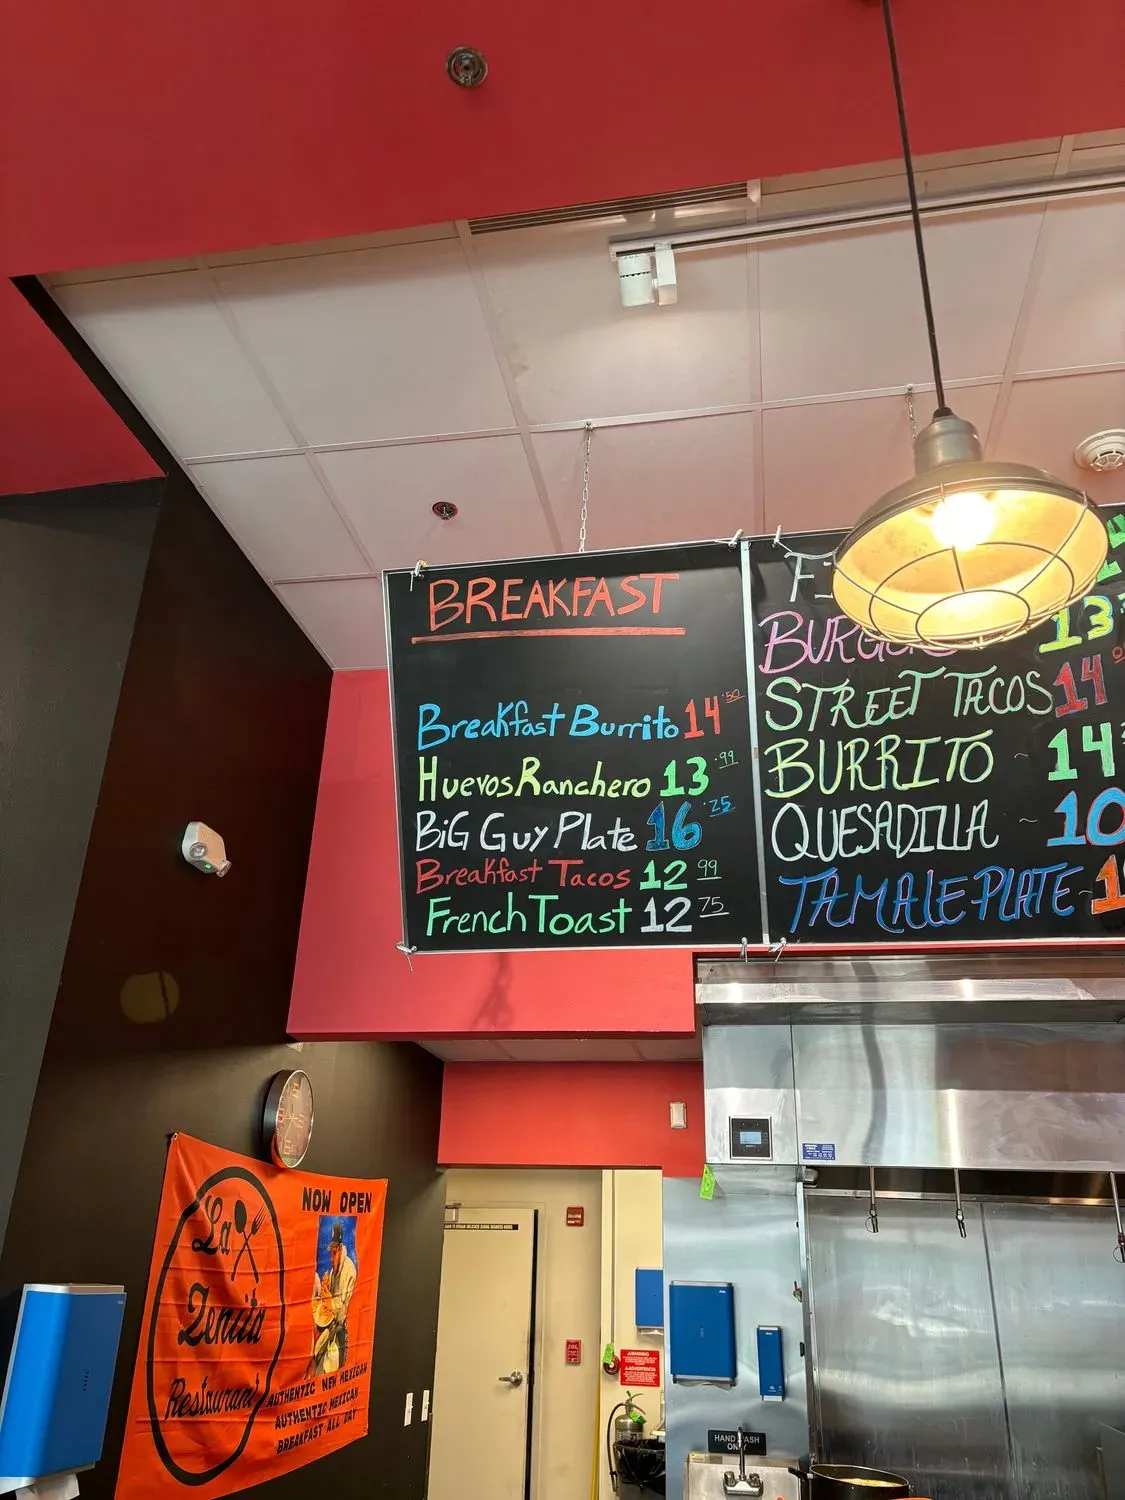 BREAKFAST
Breakfast Burrito 14.50
Huevos Ranchero 13.99
BiG Guy Plate 16.75
Breakfast Tacos 12 99
French Toast 12 75
13
STREET TACOS 14
BURRITO ~ 14
QUESADILLA ~ 10
TAMALE PLATE ~
NOW OPEN
La
Zenita
Restaurant
AUTHENTIC NEW MEXICAN
AUTHENTIC MEXICAN
BREAKFAST ALL DAY
WARNING
ADVERTENCIA
HAND WASH
ONLY